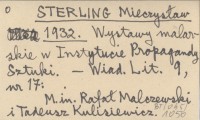 STERLING Mieczysław
1932. Wystawy malar-
skie w Instytucie Propagandy
Sztuki. – Wiad. Lit. 9,
nr 17:
M. in. Rafał Malczewski
i Tadeusz Kulisiewicz.